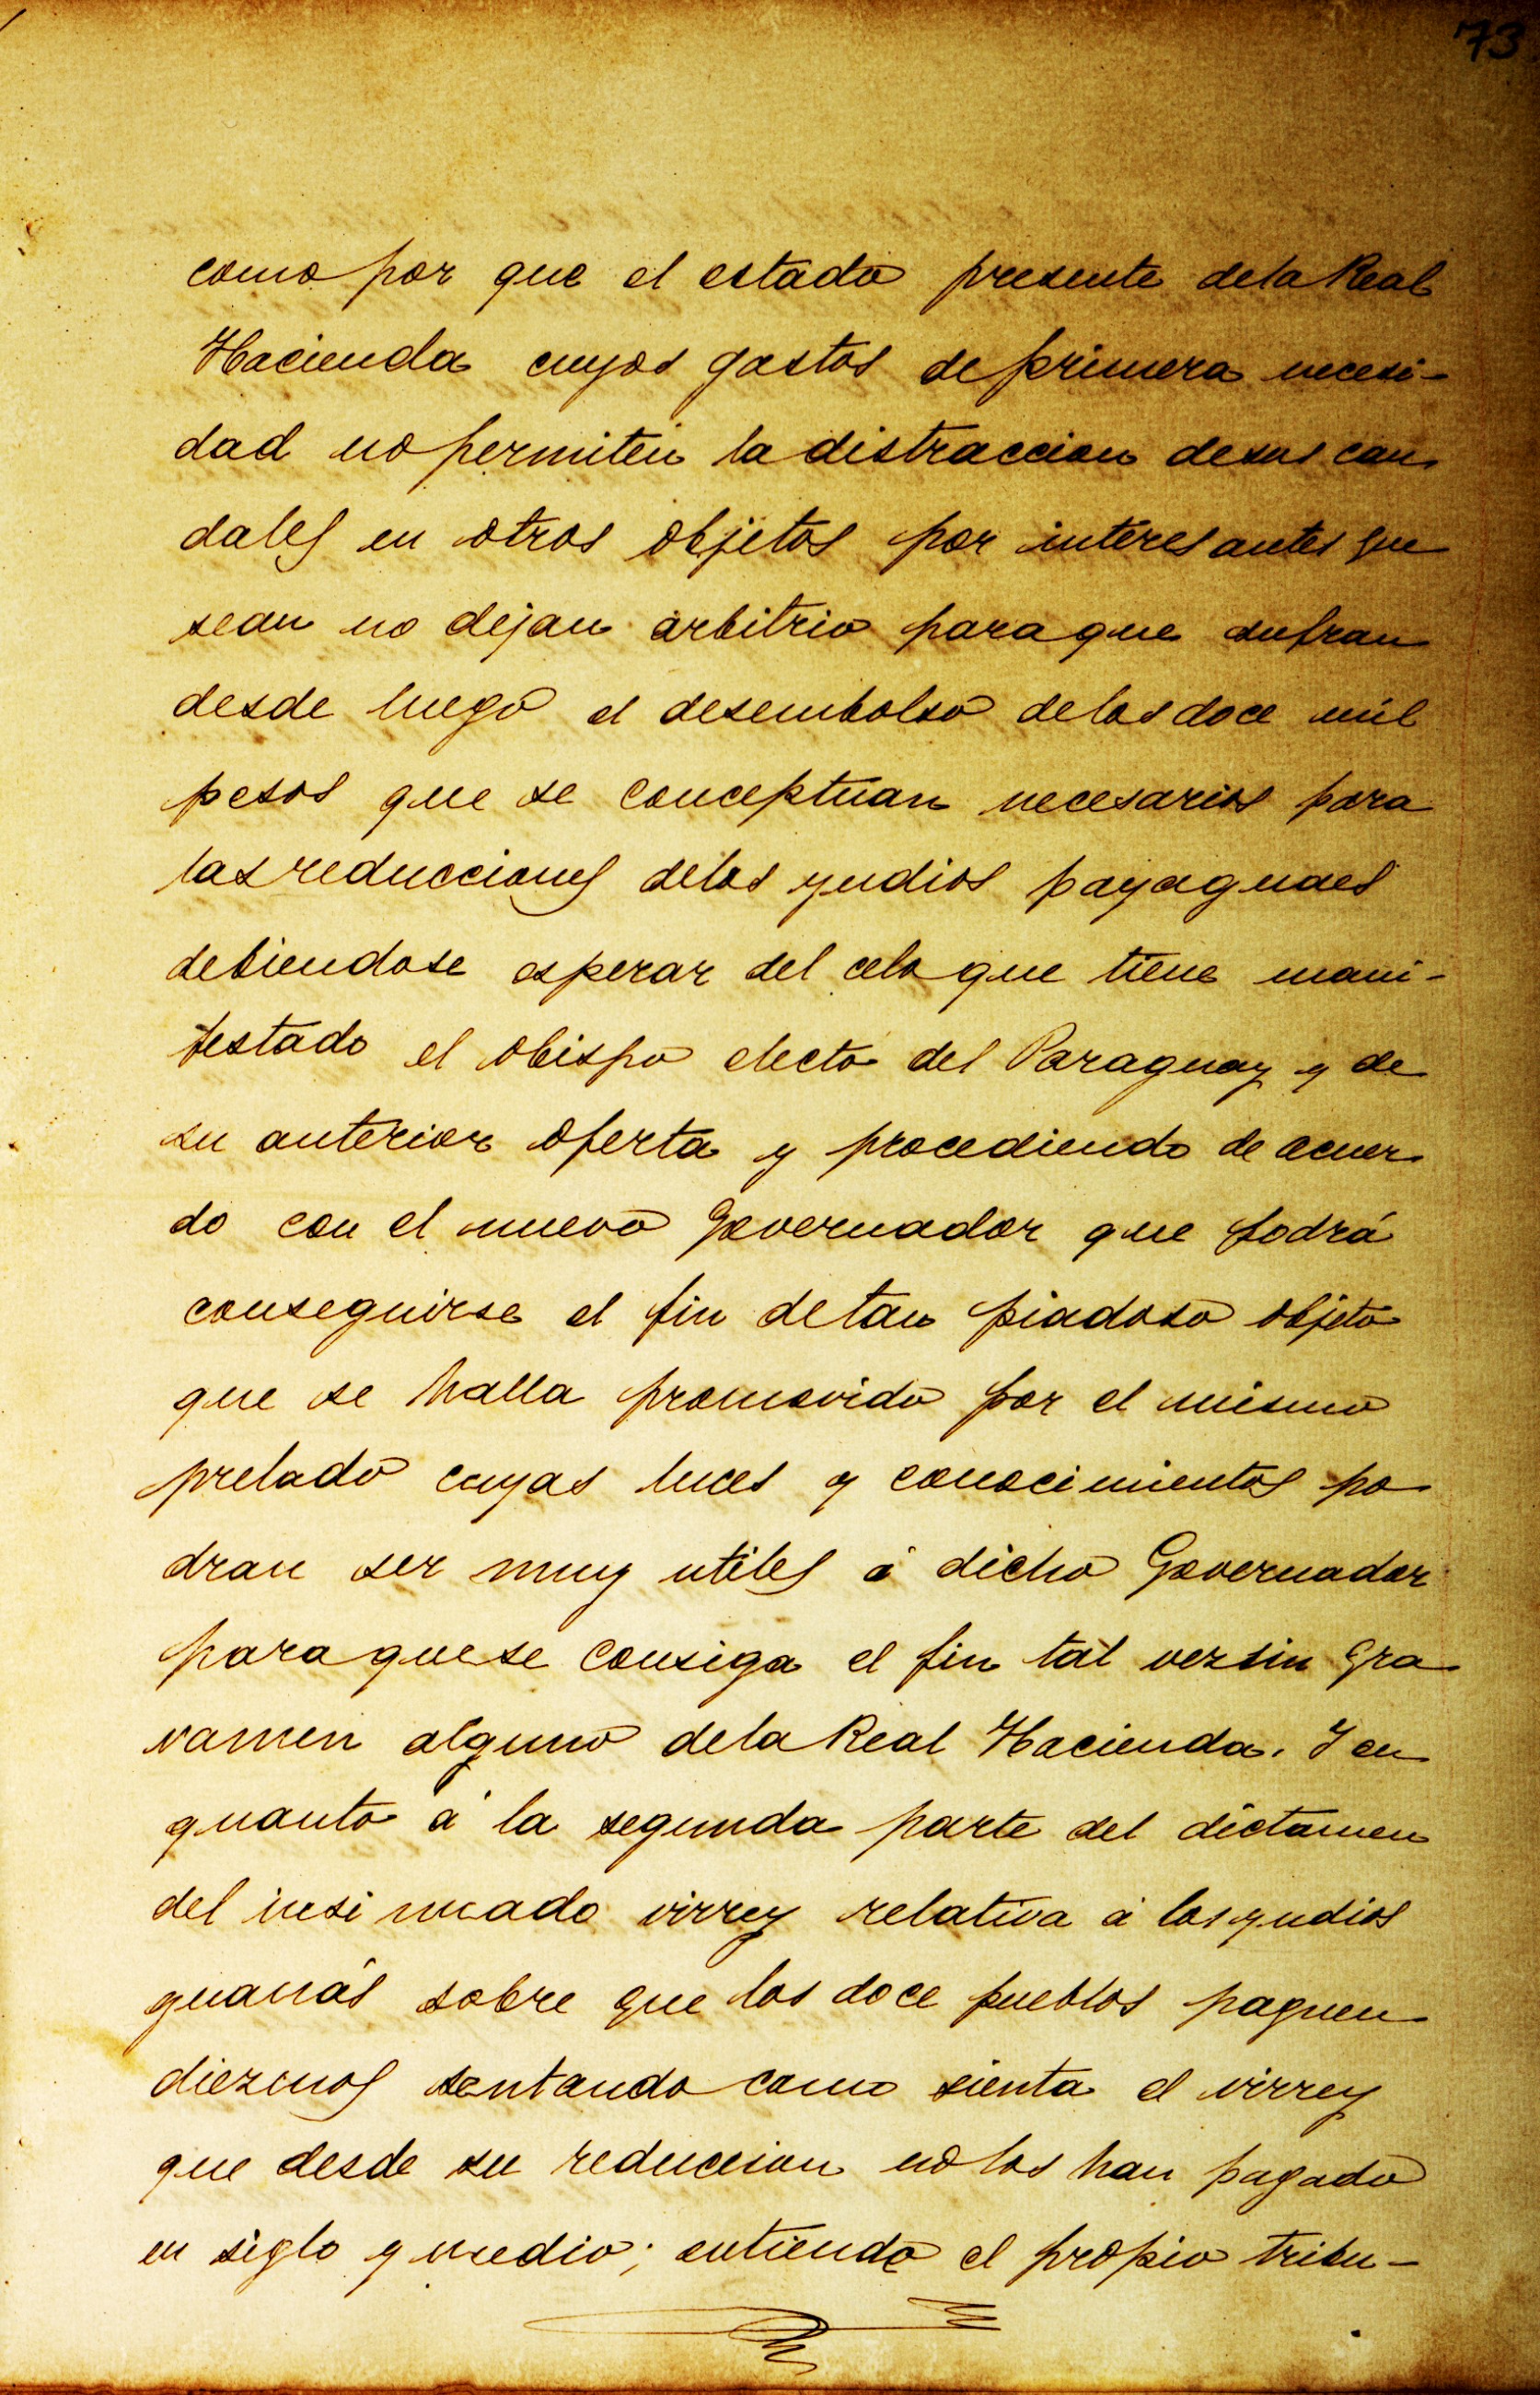 73
como por que el estado presente dela Real
Hacienda cuyos gastos de primera necesi-
dad no permiten la distraccion desus cau-
dales en otros objetos por interesantes que
sean no dejan arbitrio paraque sufran
desde luego el desembolso delos doce mil
pesos que se conceptuan necesarios para
las reducciones delos yndios payaguaes
debiendose esperar del celo que tiene mani-
festado el obispo electo del Paraguay y de
su anterior oferta y procediendo de acuer-
do con el nuevo Governador que podrá
conseguirse el fin detan piadoso objeto
que se halla promovido por el mismo
prelado cuyas luces y conocimientos po-
dran ser muy utiles á dicho Governador
paraquese consiga el fin tal vez sin gra-
vamen alguno dela Real Hacienda. Y en
quanto á la segunda parte del dictamen
del insinuado virrey relativa á los yndios
guanás sobre que los doce pueblos paguen
diezmos sentando como sienta el virrey
que desde su reduccion no los han pagado
en siglo y medio; entiendo el propio tribu-